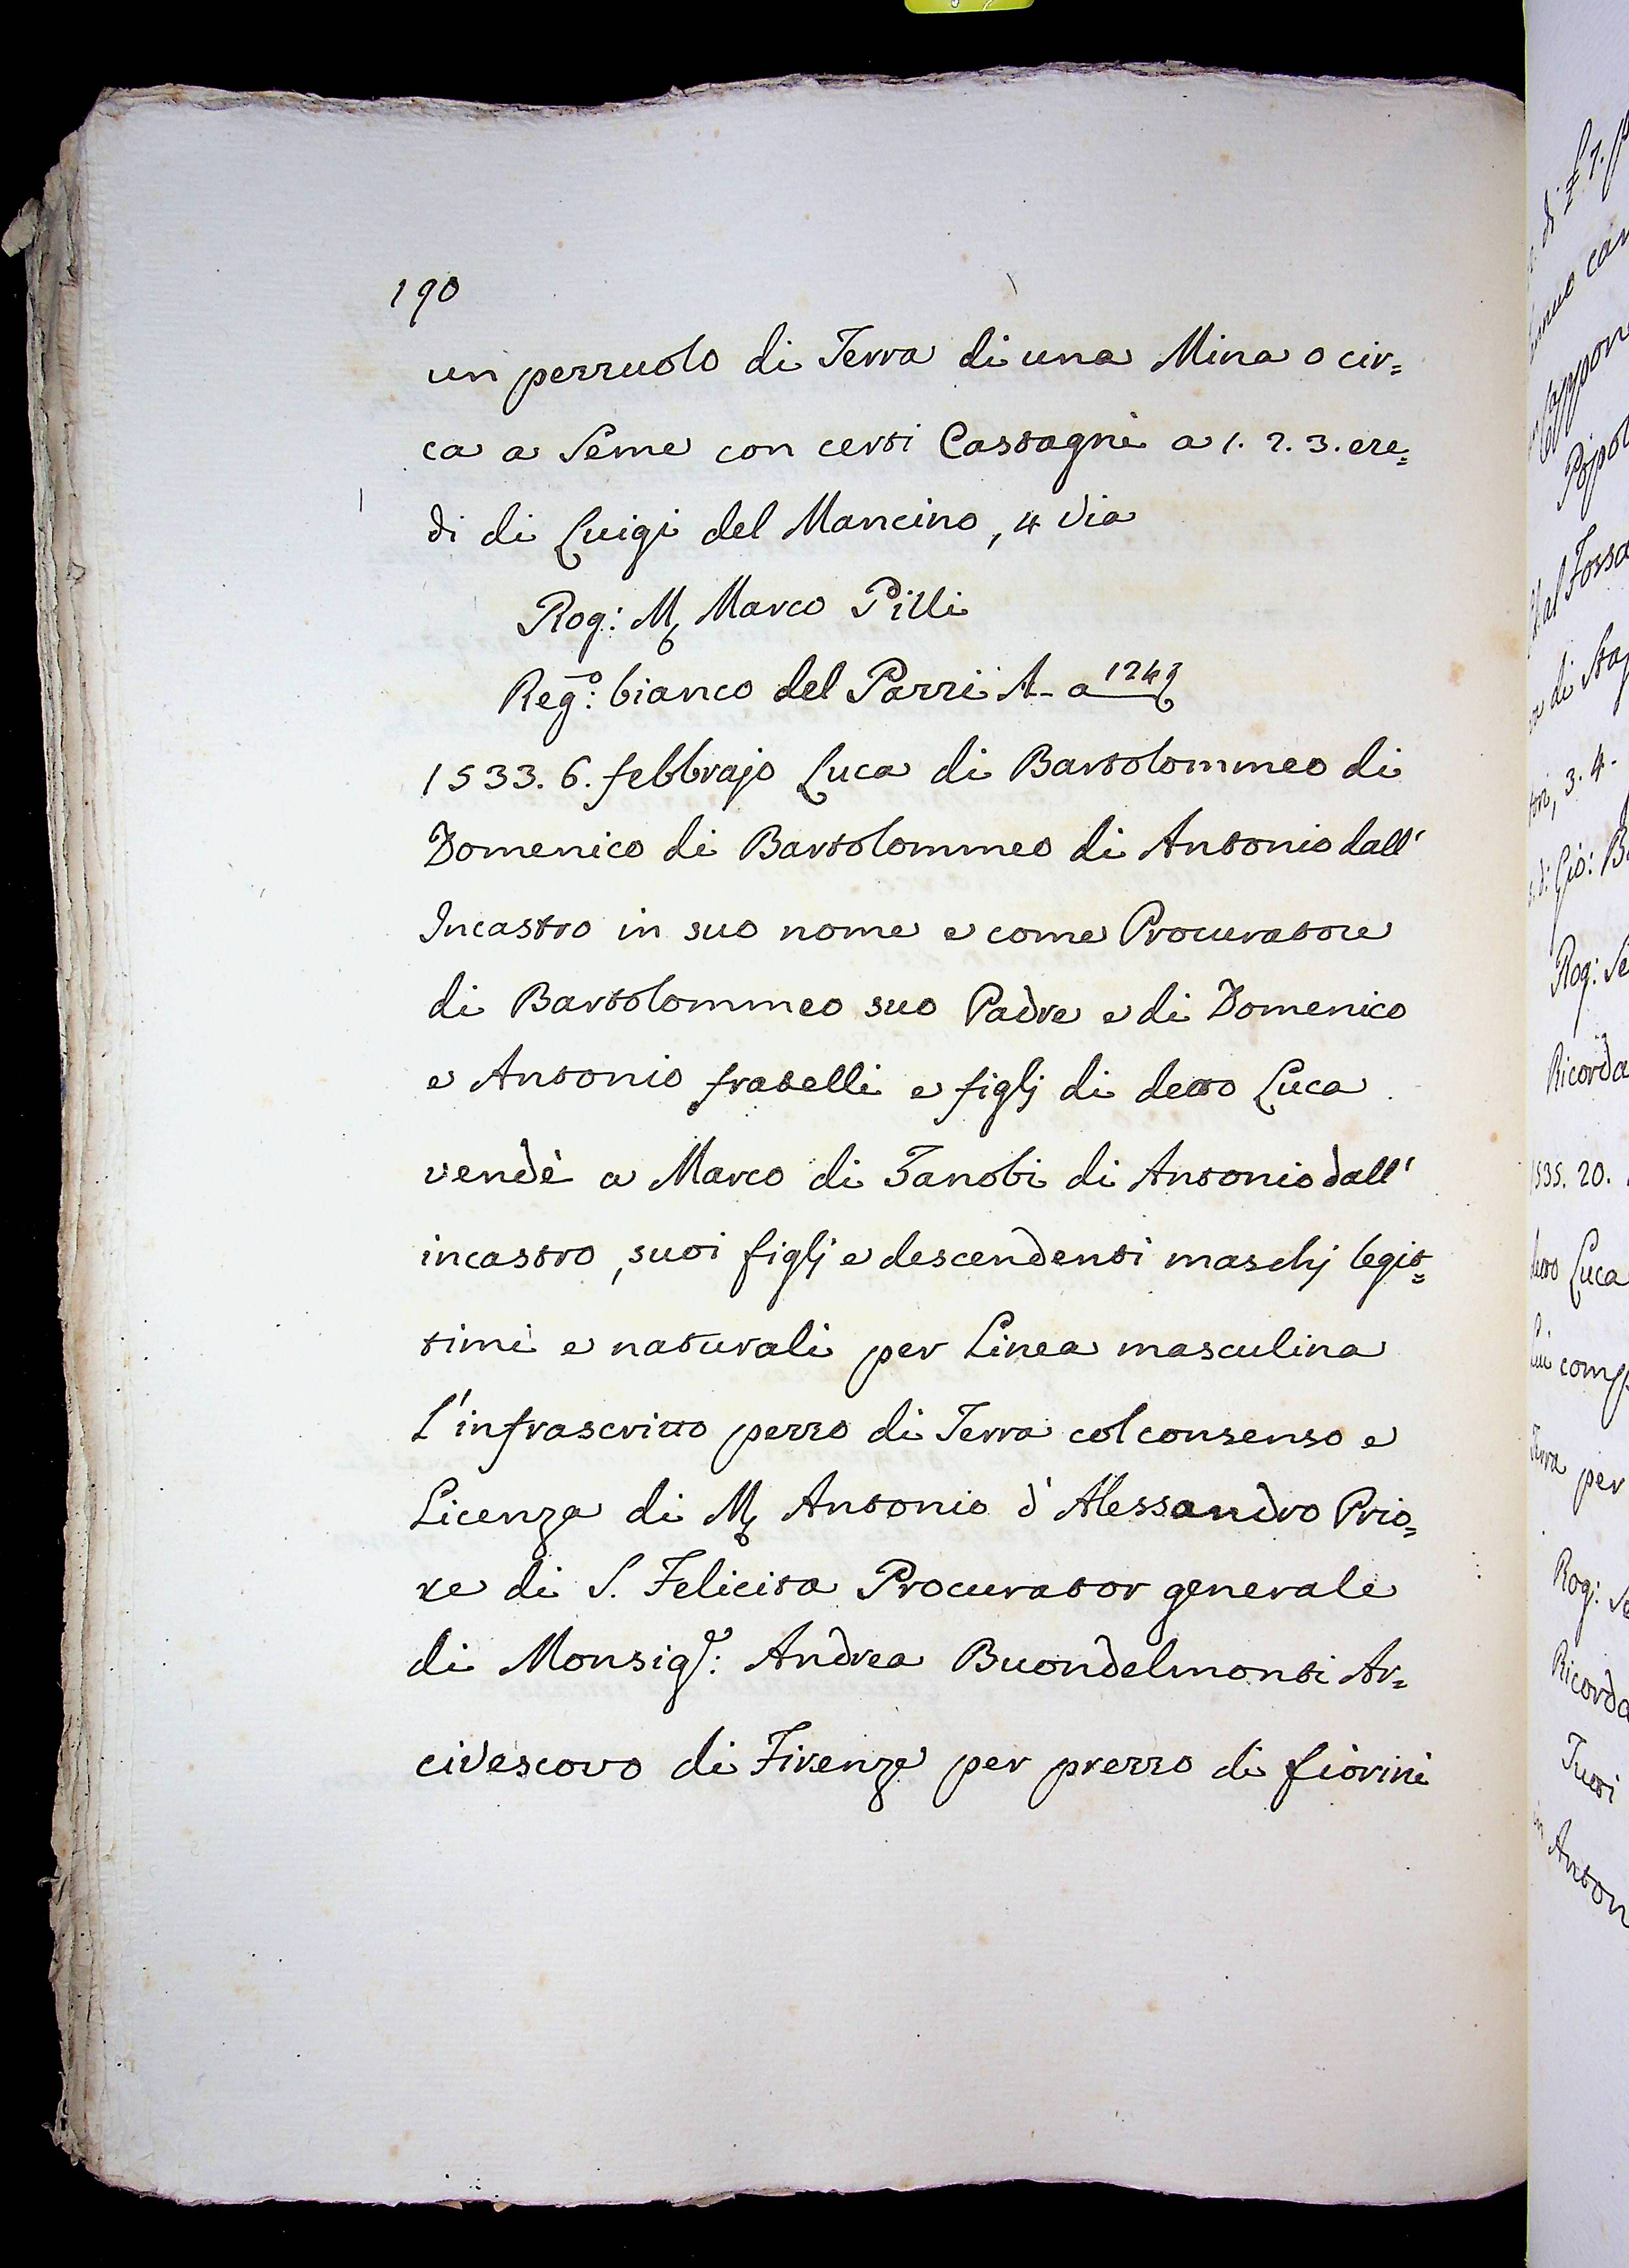 190
un pezzuolo di Terra di una Mina o cir=
ca a Seme con certi Castagni a 1. 2. 3. ere=
di di Luigi del Mancino, 4 via
Rog: M. Marco Pilli
Reg.º: bianco del Pazzi A- a 124
1533. 6. febbrajo Luca di Bartolommeo di
Domenico di Bartolommeo di Antonio dall'
Incastro in suo nome e come Procuratore
di Bartolommeo suo Padre e di Domenico
e Antonio fratelli e figlj di detto Luca
vendè a Marco di Zanobi di Antonio dall'
incastro, suoi figlj e descendenti maschj legit=
timi e naturali per Linea masculina
l'infrascritto pezzo di Terra col consenso e
Licenza di M. Antonio d'Alessandro Prio=
re di S. Felicita Procurator generale
di Monsigr.: Andrea Buondelmonti Ar=
civescovo di Firenze per prezzo di fiorini
1535. 20.
Luca
per
Rog: